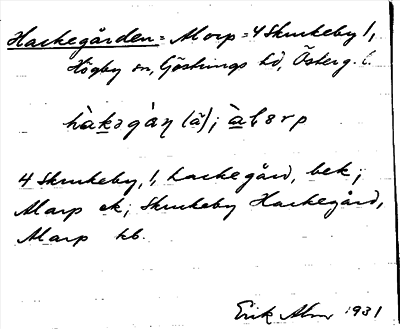 Hackegården = Alarp = 4 Skrukeby 1,
Högby sn, Göstrings hd, Österg. l.
hàkəgàṇ (ā); àlarp
4 Skrukeby, 1, hackegård, bek;
Alarp ek; Skrukeby Hackegård,
Alarp kb.
Erik Abm 1931